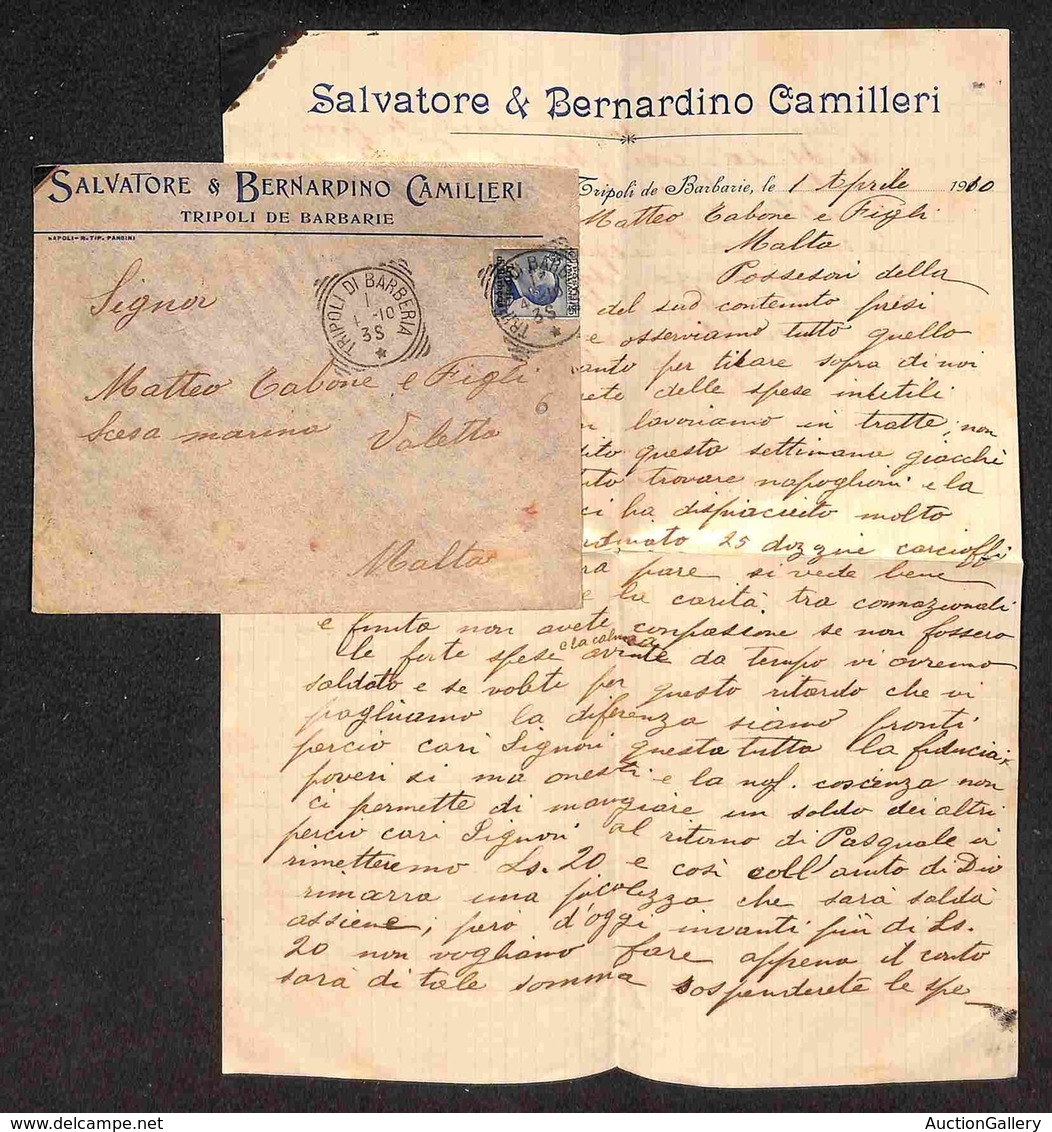 Salvatore & Bernardino Camilleri
Tripoli de Barbarie, le 1 Aprile 1910
Matteo Tabone e Figli
Malta
Possesori della
del sud contenuto presi
e osserviamo tutto quello
anto per tirare sopra di noi
rete delle spese inutili
lavoriamo in tratte, non
dito questa settimana giacchi
uto trovare napoglioni e la
ci ha dispiaciuto molto
rdinato 25 dozzine carcioffi
ra pare si vede bene
e la carità tra connazionali
e finita non avete compasione se non fossero
le forte spese e la calma avute da tempo vi avremo
saldato e se volete per questo ritardo che vi
pagliuamo la diferenza siamo pronti
percio cari Signori questa tutta la fiducia
poveri si ma onesti e la nos. coscenza non
ci permette di mangiare un soldo dei altri
percio cari Signori al ritorno di Pasquale vi
rimetteremo Ls. 20 e così coll'aiuto di Dio
rimarra una picolezza che sarà salda
assieme, però d'oggi invanti più di Ls.
20 non vogliamo fare appena il conto
sarà di tale somma sospenderete le spe
SALVATORE & BERNARDINO CAMILLERI
TRIPOLI DE BARBARIE
NAPOLI-R. TIP. PANSINI
TRIPOLI DI BARBERIA
1 -10
3S
TRIPOLI DI BARBERIA
3S
Signor
Matteo Tabone e Figli
6
Scesa marina Valetta
Malta
AuctionGallery